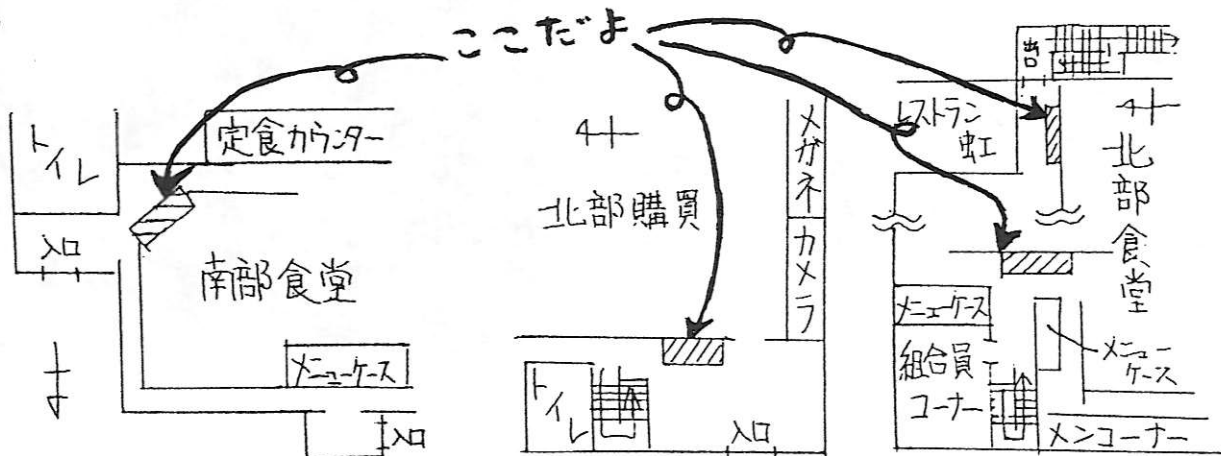 ここだよ
トイレ
定食カウンター
入口
南部食堂
メニューケース
入口
北部購買
メガネ
カメラ
トイレ
入口
出口
レストラン
虹
北部食堂
メニューケース
組合員
コーナー
メニュー
ケース
メンコーナー